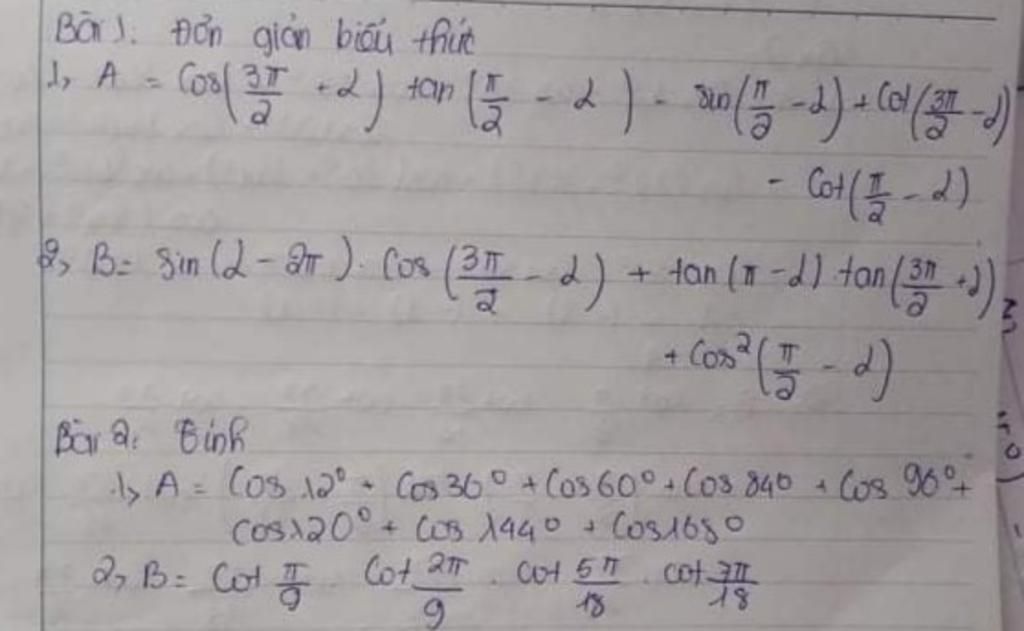 Bài 1. Đơn giản biểu thức
1, A = Cos(3π/2 + α) tan(π/2 - α) - sin(π/2 - α) + Cot(3π/2 - α)
- Cot(π/2 - α)
2, B = sin(α - 2π). Cos(3π/2 - α) + tan(π - α) tan(3π/2 + α)
+ Cos²(π/2 - α)
Bài 2: Tính
1, A = Cos 12° + Cos 36° + Cos 60° + Cos 84° + Cos 96° +
Cos 120° + Cos 144° + Cos 168°
2, B = Cot π/9 . Cot 2π/9 . cot 5π/18 . cot 7π/18